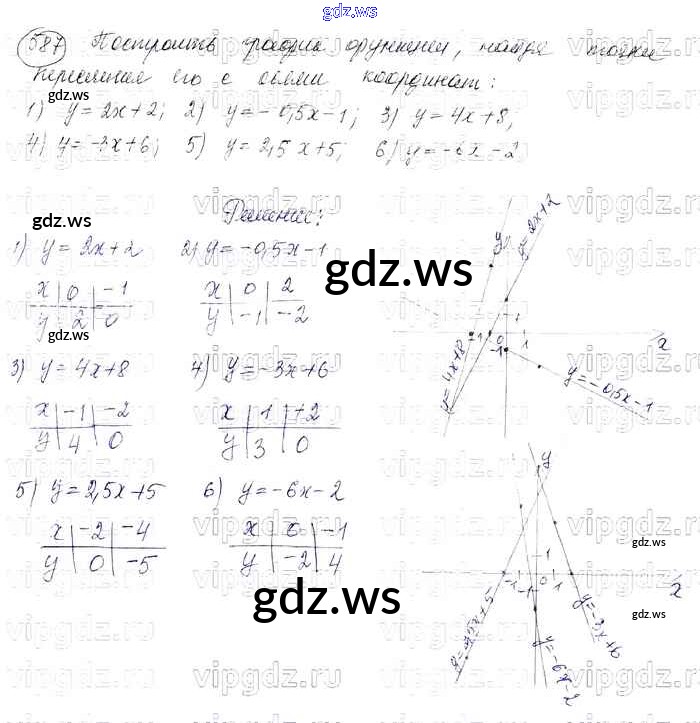 gdz.ws
587 Построить график функции, найдя точки
пересечения его с осями координат:
gdz.ws
1) y = 2x + 2; 2) y = -0,5x - 1; 3) y = 4x + 8;
4) y = -3x + 6; 5) y = 2,5x + 5; 6) y = -6x - 2
gdz.ws
Решение:
1) y = 2x + 2 2) y = -0,5x - 1
x 0 -1 x 0 2
y 2 0 y -1 -2
gdz.ws
gdz.ws
3) y = 4x + 8 4) y = -3x + 6
x -1 -2 x 1 +2
y 4 0 y 3 0
5) y = 2,5x + 5 6) y = -6x - 2
x -2 -4 x 0 -1
y 0 -5 y -2 4
gdz.ws
y
y = 2x + 2
1
-1 0 1 x
-1
y = 4x + 8
y = -0,5x - 1
y
gdz.ws
1
-1 0 1 x
-1
gdz.ws
y = 2,5x + 5
y = -3x + 6
y = -6x - 2
vipgdz.ru